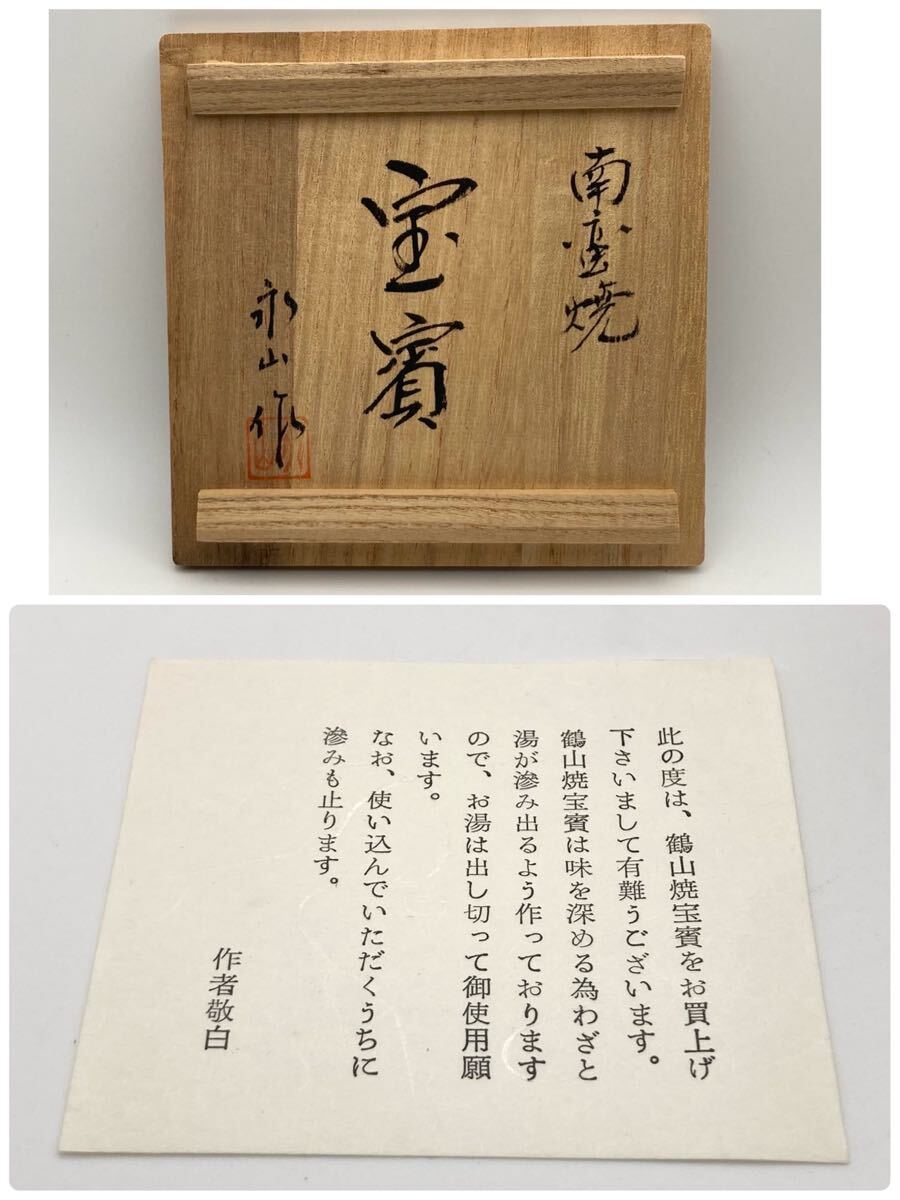 南蛮焼
宝賓
永山作
此の度は、鶴山焼宝賓をお買上げ
下さいまして有難うございます。
鶴山焼宝賓は味を深める為わざと
湯が滲み出るよう作っております
ので、お湯は出し切って御使用願
います。
なお、使い込んでいただくうちに
滲みも止ります。
作者敬白